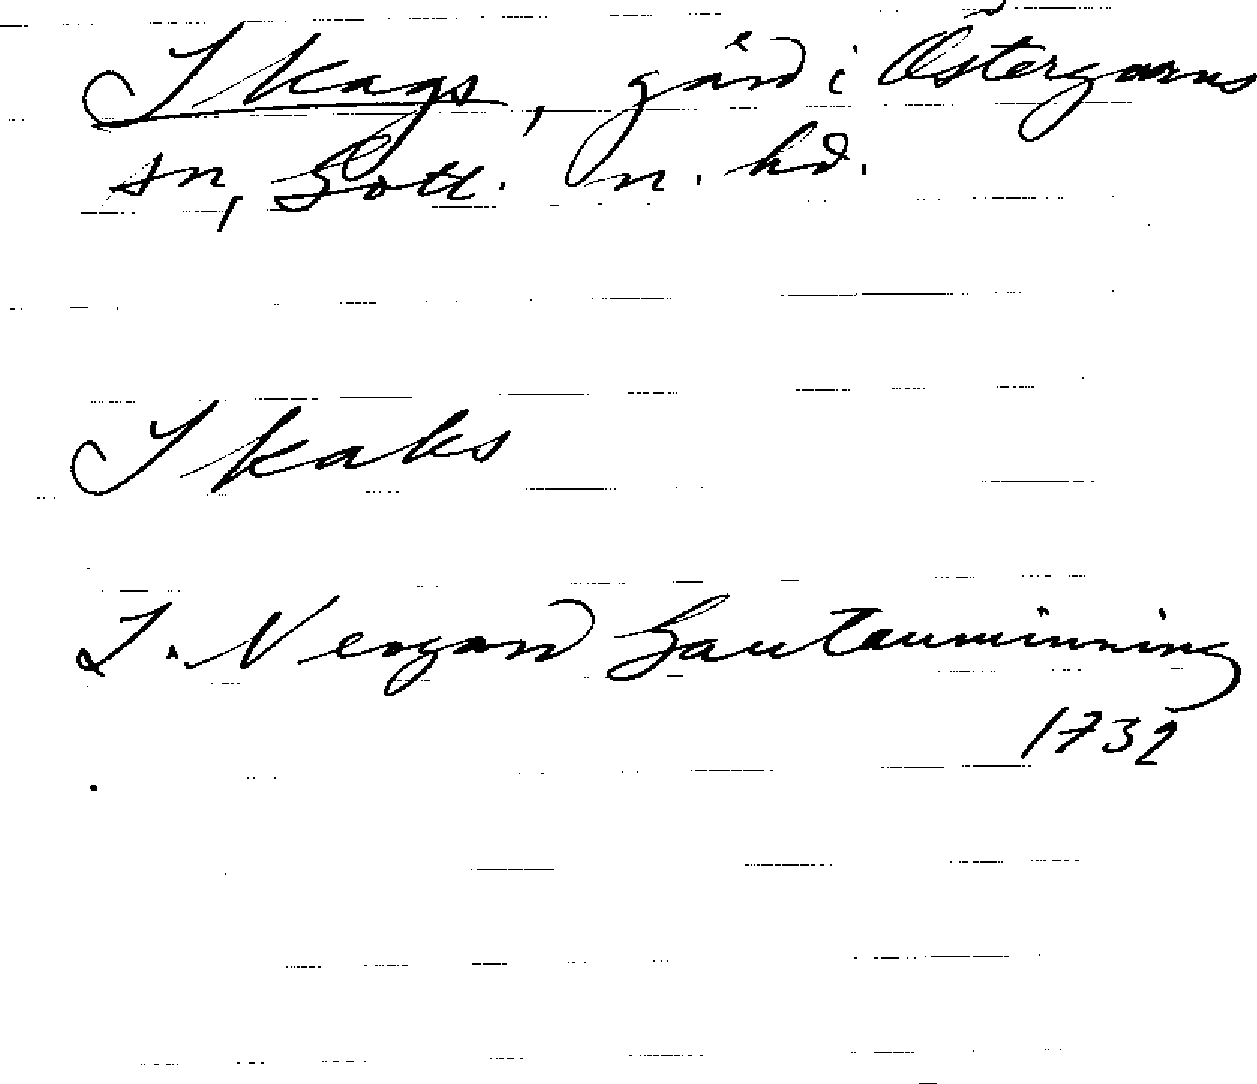 Skags, gård i Östergarns
sn, Gotl. n. hd.
Skaks
L. Neogard Gautauminning
1732